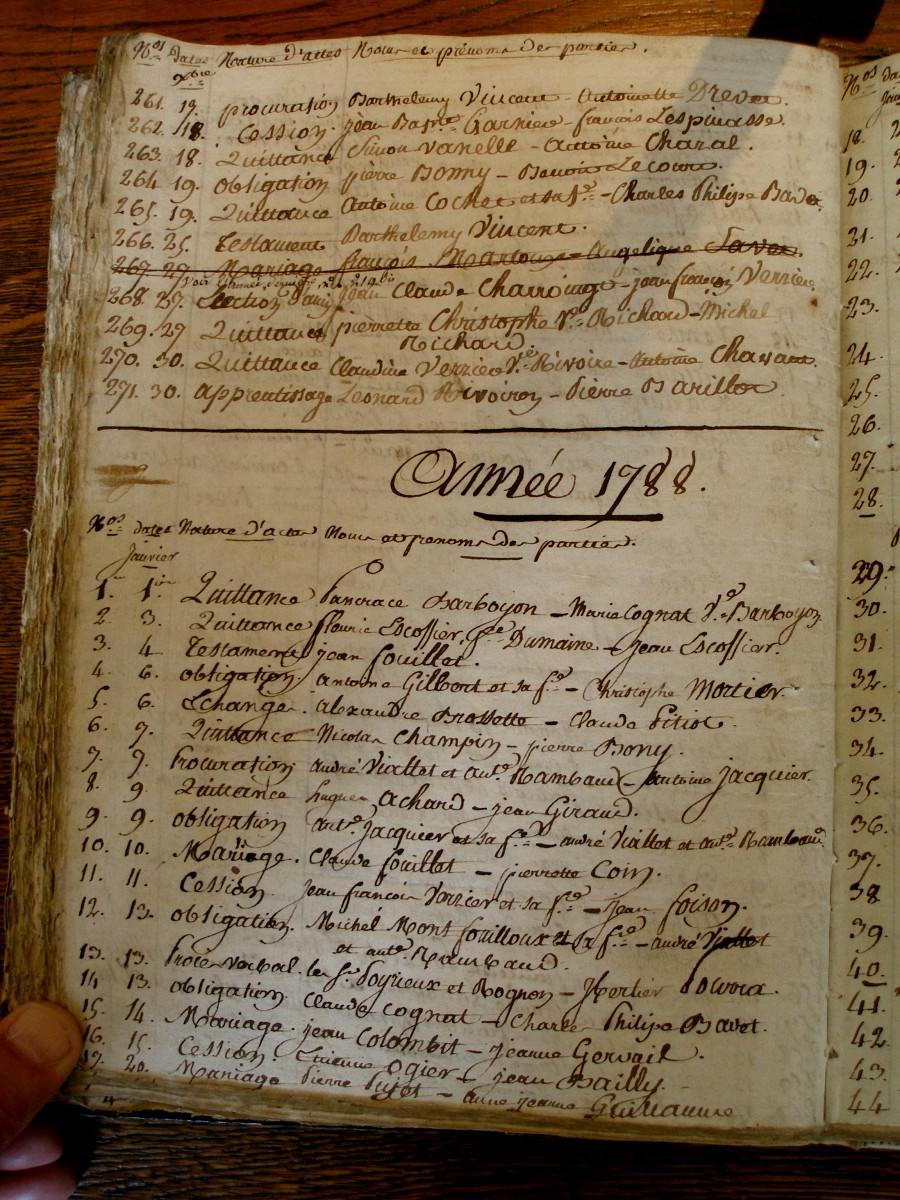 Nos dates Nature d'actes Noms et prénoms des parties.
Xbre
261. 17. procuration Barthelemy Vincent - Antoinette Drevet.
262. 18. Cession. jean Bapte Garnier - françois Lespinasse.
263. 18. Quittance Simon Vanelle - Antoine Charal.
264 19. obligation pierre Bonny - Benoit Lecour.
265. 19. Quittance Antoine Cochet et sa fe - Charles Philipe Bavet.
266. 25. Testament Barthelemy Vincent.
267 27 Mariage françois - Angelique Favet
268. 27. Election d'ami jean Claude Charrouage - jean françois Verrier
269. 27 Quittance pierrette Christophe Ve Richard - Michel
Richard.
270. 30. Quittance Claudine Verrier Ve Rivoire - Antoine Chavant.
271. 30. apprentissage Leonard Rivoiron - Pierre Barillot.
Année 1788.
Nos dates Nature d'actes Noms et prenoms des parties.
Janvier
1. 1er Quittance Pancrace Barboyon - Marie Cognat Ve Barboyon.
2. 3. Quittance fleurie Escoffier, fe Dumaine - jean Escoffier.
3. 4 Testament jean fouillet.
4. 6. obligation antoine Gilbert et sa fe - Christophe Mortier.
5. 6. Echange. alexandre Brossette - Claude Pitiot.
6. 7. Quittance Nicolas Champin - pierre Bony.
7. 7. Procuration andré Viallet et ante Rambaud - antoine jacquier.
8. 9. Quittance hugues achard - jean Giraud.
9. 9. obligation ante jacquier et sa fe - andré Viallet et ante Rambaud.
10. 10. Mariage. Claude fouillet - pierrette Coin.
11. 11. Cession. jean françois Verrier et sa fe - jean foison.
12. 13. obligation. Michel Montfouilloux et sa fe - andré Viallet
et ante Rambaud.
13. 13. Procès verbal. les Srs Poyrieux et Rognon -
14 13. obligation. Claude Cognat - Charles Philipe Bavet.
15. 14. Mariage. jean Colombit - jeanne Gervail.
16. 15. Cession. Etienne Ogier - jean Bailly.
17. 20. Mariage Pierre Pujet - anne jeanne Guillaume
18.
19.
20.
21.
22.
23.
24.
25.
26.
27.
28.
29.
30.
31.
32.
33.
34.
35.
36.
37.
38
39.
40.
41.
42.
43.
44